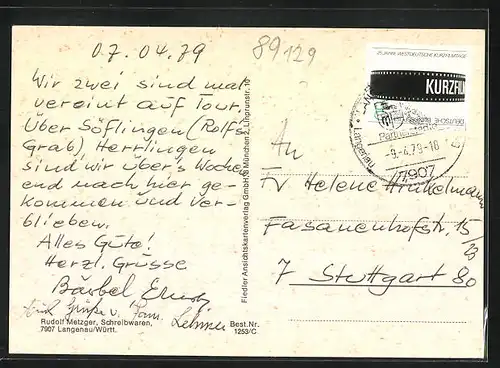 07.04.79
89129
Wir zwei sind mal
vereint auf Tour.
Über Söflingen (Rolfs
Grab), Herrlingen
sind wir über's Wochen
end nach hier ge-
kommen und ver-
blieben.
Alles Gute!
Herzl. Grüsse
Bärbel
Grüße v. Fam.
Rudolf Metzger, Schreibwaren,
7907 Langenau/Württ.
Best.Nr.
1253/C
Fiedler Ansichtskartenverlag GmbH, 8 München 2, Liprunstr. 10
25 JAHRE WESTDEUTSCHE KURZFILMTAGE
KURZFIL
DEUTSCHE BUNDES
-9.-4.79-18
7907
An
Fr Helene Hinkelmann
Fasanenhofstr. 15
7 Stuttgart 80